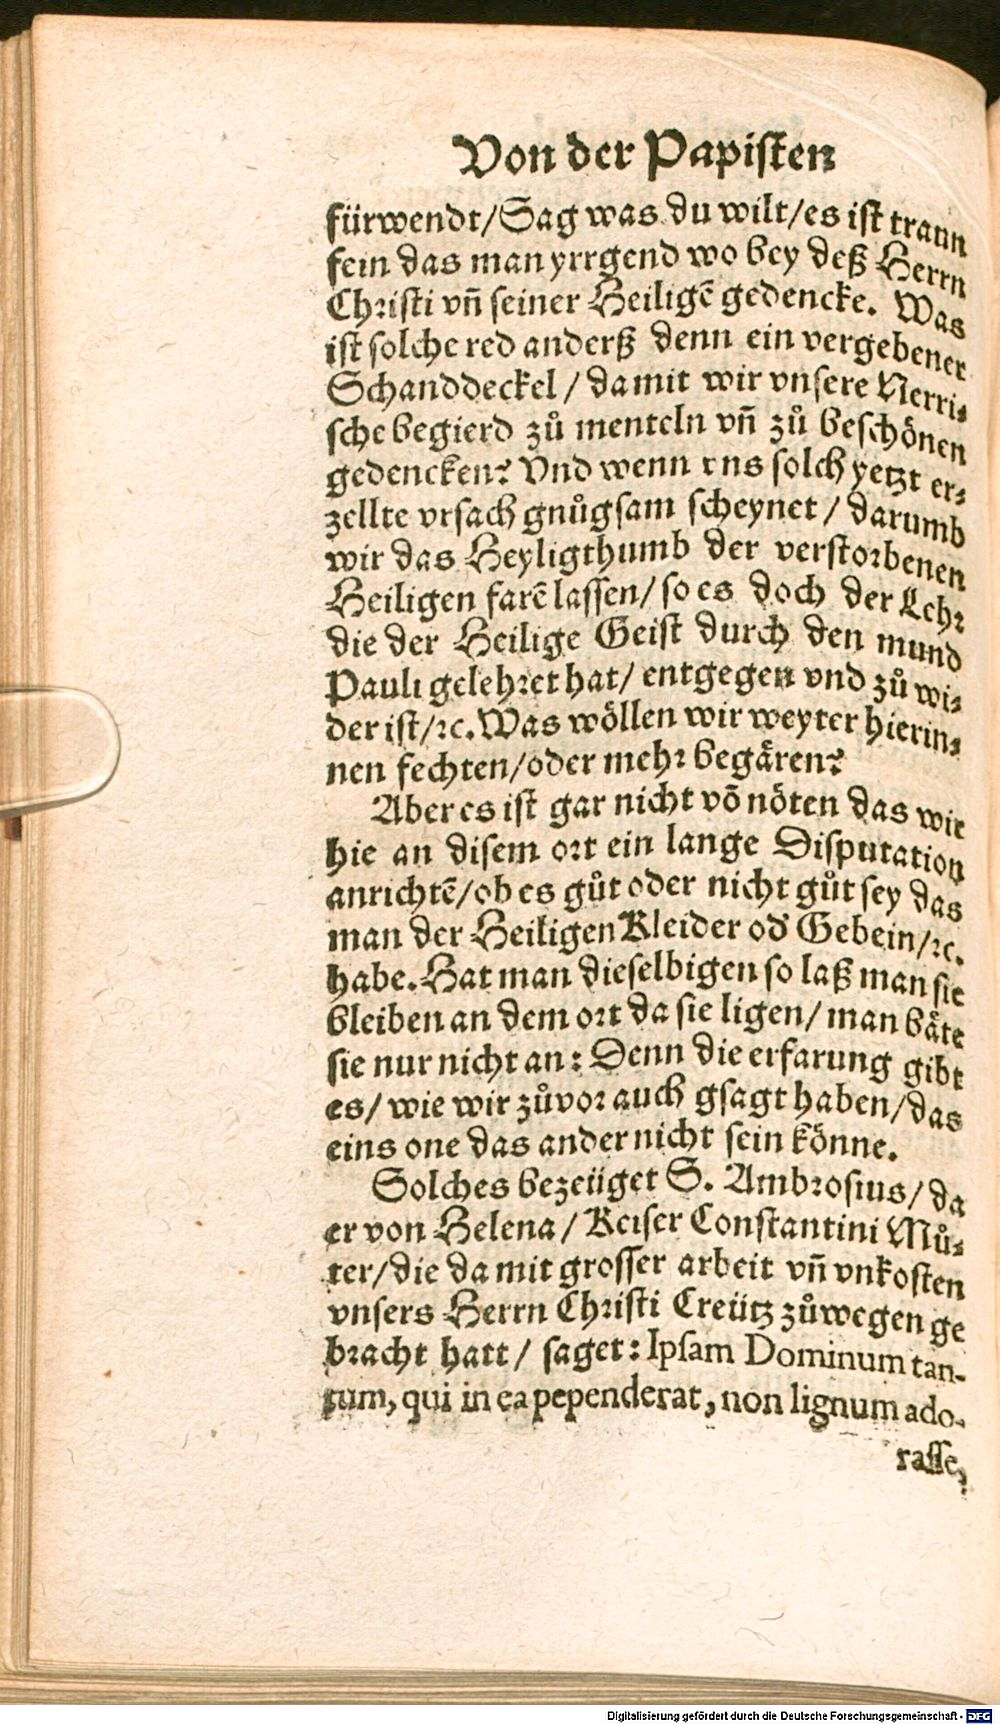 Von der Papisten
fürwendt/Sag was du wilt/es ist traun
fein das man yrrgend wo bey deß Herrn
Christi vñ seiner Heiligẽ gedencke. Was
ist solche red anderß denn ein vergebener
Schanddeckel / damit wir vnsere Nerri-
sche begierd zů menteln vñ zů beschönen
gedencken? Vnd wenn vns solch yetzt er-
zellte vrsach gnůgsam scheynet / darumb
wir das Heyligthumb der verstorbenen
Heiligen farẽ lassen/ so es doch der Lehr
die der Heilige Geist durch den mund
Pauli gelehret hat/ entgegen vnd zů wi-
der ist/ꝛc. Was wöllen wir weyter hierin-
nen fechten/oder mehr begären?
Aber es ist gar nicht võ nöten das wir
hie an disem ort ein lange Disputation
anrichtẽ/ob es gůt oder nicht gůt sey das
man der Heiligen Kleider od' Gebein/ꝛc.
habe. Hat man dieselbigen so laß man sie
bleiben an dem ort da sie ligen/ man bäte
sie nur nicht an: Denn die erfarung gibt
es/ wie wir zůvor auch gsagt haben/das
eins one das ander nicht sein könne.
Solches bezeüget S. Ambrosius/ da
er von Helena / Keiser Constantini Mů-
ter/die da mit grosser arbeit vñ vnkosten
vnsers Herrn Christi Creütz zůwegen ge
bracht hatt / saget: Ipsam Dominum tan-
tum, qui in ea pependerat, non lignum ado-
rasse,
Digitalisierung gefördert durch die Deutsche Forschungsgemeinschaft - DFG